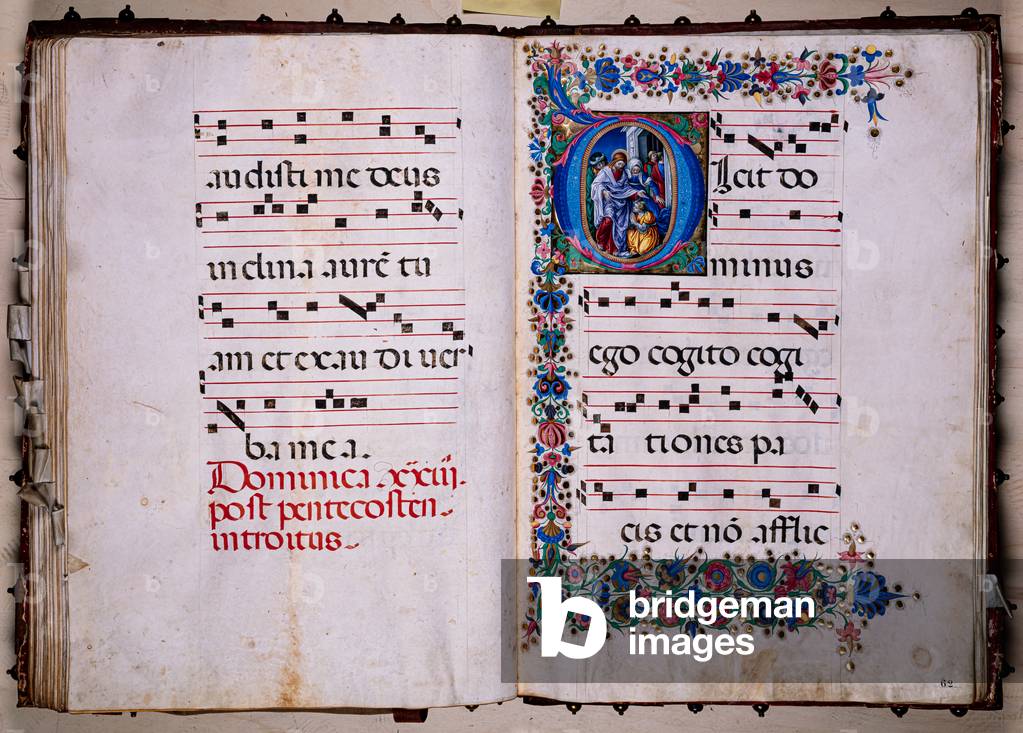 audisti me deus
inclina aurē tu
am et exau di uer
ba mea.
Dominica xxiij.
post pentecosten.
introitus.
Dicit do
minus
ego cogito cogi
ta tiones pa
cis et nō afflic
62
b bridgeman
images